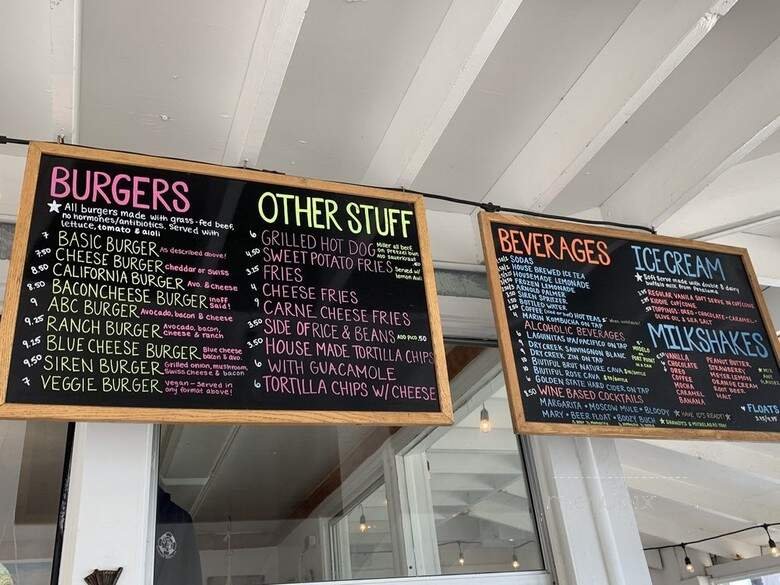 BURGERS
★ All burgers made with grass-fed beef,
no hormones/antibiotics. Served with
lettuce, tomato & aioli
7 BASIC BURGER As described above!
7.50 CHEESE BURGER cheddar or swiss
8.50 CALIFORNIA BURGER Avo. & Cheese
8.50 BACON CHEESE BURGER
9 ABC BURGER Avocado, bacon & cheese
9.25 RANCH BURGER Avocado, bacon, cheese & ranch
9.25 BLUE CHEESE BURGER Blue cheese bacon & avo.
9.50 SIREN BURGER Grilled onion, mushroom, Swiss cheese & bacon
7 VEGGIE BURGER vegan - served in any format above!
OTHER STUFF
6 GRILLED HOT DOG Niler all beef on pretzel bun Add sauerkraut
4.50 SWEET POTATO FRIES Served w/ lemon Aioli
3.25 FRIES
4 CHEESE FRIES
9 CARNE CHEESE FRIES
3.50 SIDE OF RICE & BEANS ADD PICO .50
3.50 HOUSE MADE TORTILLA CHIPS
6 WITH GUACAMOLE
6 TORTILLA CHIPS W/ CHEESE
BEVERAGES
SODAS
HOUSE BREWED ICE TEA
HOUSEMADE LEMONADE
FROZEN LEMONADE
ARNOLD PALMER
SIREN SPRITZER
BOTTLED WATER
COFFEE HOT TEAS
MARIN KOMBUCHA ON TAP
ALCOHOLIC BEVERAGES
LAGUNITAS IPA/PACIFICO ON TAP
DRY CREEK, SAUVIGNON BLANC
DRY CREEK, ZIN ON TAP
BIUTIFUL BRUT NATURE CAVA
BIUTIFUL ROSE CAVA
GOLDEN STATE HARD CIDER ON TAP
WINE BASED COCKTAILS
MARGARITA • MOSCOW MULE • BLOODY
MARY • BEER FLOAT • BOOZY BUCH
ICE CREAM
★ Soft serve made with double & dairy
buffalo milk from Petaluma
REGULAR VANILLA SOFT SERVE IN CUP/CONE
KIDDIE CUP/CONE
TOPPINGS: OREO - CHOCOLATE - CARAMEL -
OLIVE OIL & SEA SALT
MILKSHAKES
VANILLA
CHOCOLATE
OREO
COFFEE
MOCHA
CARAMEL
BANANA
PEANUT BUTTER
STRAWBERRY
MEYER LEMON
ORANGE CREAM
ROOT BEER
MALT
FLOATS